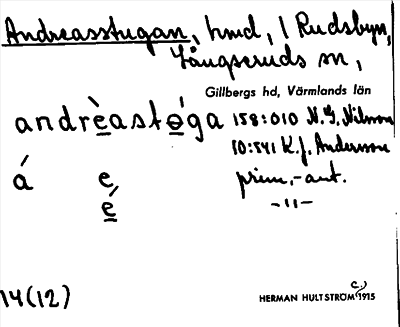 Andreasstugan, hmd, i Rudsbyn,
Långseruds sn,
Gillbergs hd, Värmlands län
andrèastǿga 158:010 N. G. Nilsson
10:541 K. J. Andersson
á e prim.-ant.
é -11-
14(12)
HERMAN HULTSTRÖM c.) 1915